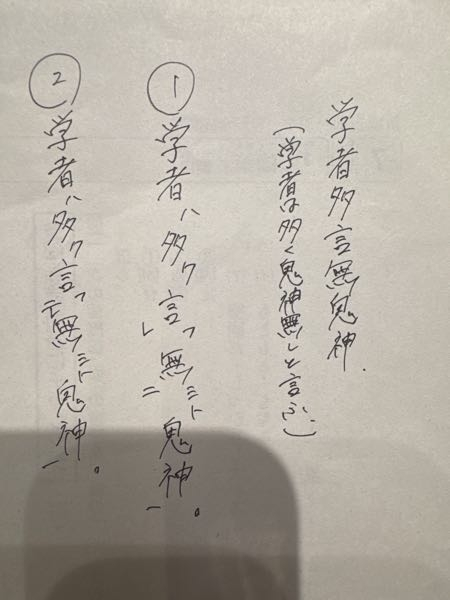 学者多言無鬼神.
(学者は多く鬼神無しと言ふ。)
① 学者ハ多ク言フレ無ニシト鬼神一。
② 学者ハ多ク言フ二無シト鬼神一。